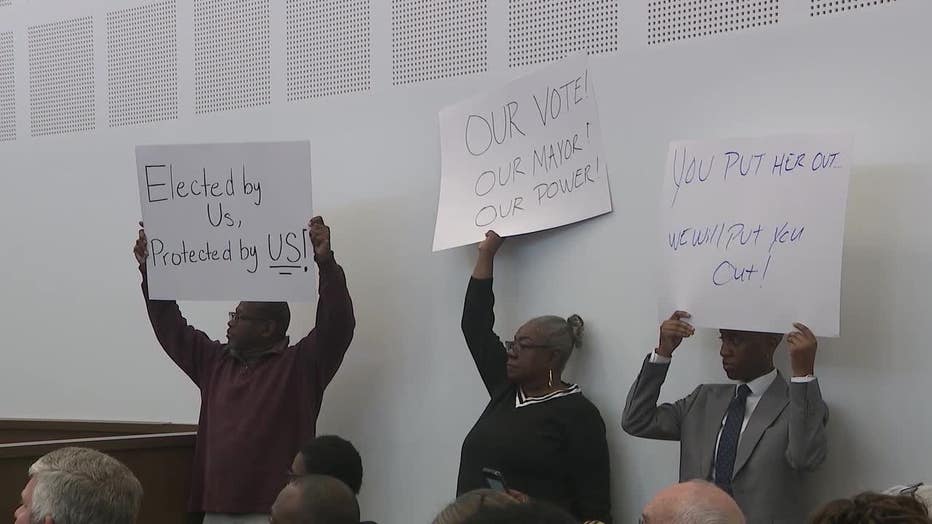 Elected by
Us,
Protected by US!
OUR VOTE!
OUR MAYOR!
OUR POWER!
YOU PUT HER OUT...
WE WILL PUT YOU
OUT!